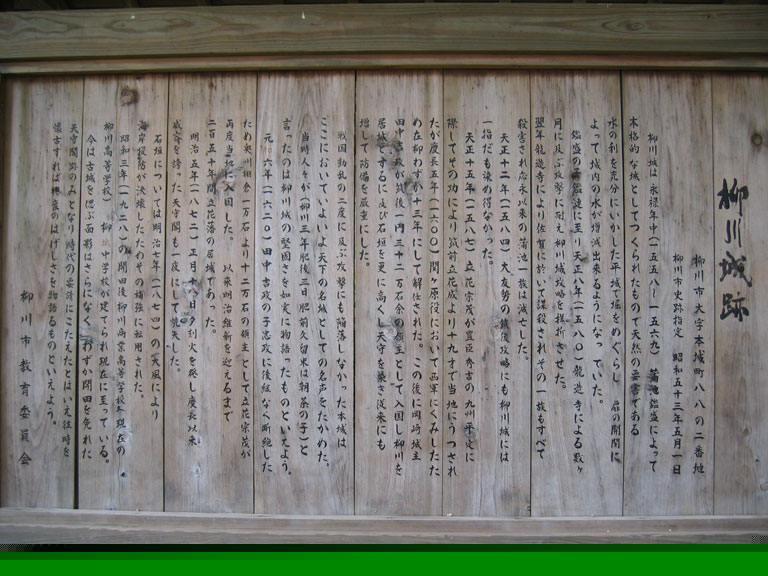 柳川城跡
柳川市大字本城町八八の二番地
柳川市史跡指定 昭和五十三年五月一日
柳川城は永禄年中(一五五八~一五六九)蒲池鑑盛によって
本格的な城としてつくられたもので天然の要害である
水の利を充分にいかした平城で堀をめぐらし 扉の開閉に
よって城内の水が増減出来るようになっていた。
鑑盛の子鎮漣に至り天正八年(一五八〇)龍造寺による数ヶ
月に及ぶ攻撃に耐え柳川城攻略を挫折させた。
翌年龍造寺により佐賀に於いて謀殺されその一族もすべて
殺害され応永以来の蒲池一族は滅亡した。
天正十二年(一五八四)大友勢の筑後攻略にも柳川城には
一指だも染め得なかった。
天正十五年(一五八七)立花宗茂が豊臣秀吉の九州平定に
際してその功により筑前立花城より十九才で当地にうつされ
たが慶長五年(一六〇〇)関ヶ原役において西軍にくみしたた
め在柳わずか十三年にして解任された。この後に岡崎城主
田中吉政が筑後一円三十二万石余の領主として入国し柳川を
居城とするに及び石垣を更に高くし天守を築き従来にも
増して防備を厳重にした。
戦国動乱の二度に及ぶ攻撃にも陥落しなかった本城は
ここにおいていよいよ天下の名城としての名声をたかめた。
当時人々が(柳川三年肥後三日肥前久留米は朝茶の子)と
言ったのは柳川城の堅固さを如実に物語ったものといえよう。
元和六年(一六二〇)田中吉政の子忠政に後継なく断絶した
ため奥州棚倉一万石より十二万石の領主として立花宗茂が
再度当地に入国した。 以来明治維新を迎えるまで
二百五十年間立花藩の居城であった。
明治五年(一八七二)正月十八日夕刻火を発し慶長以来
威容を誇った天守閣も一夜にして焼失した。
石垣については明治七年(一八七四)の大風により
海岸堤防が決壊したためその補強に転用された。
昭和三年(一九二八)の開田後柳川商業高等学校(現在の
柳川高等学校) 柳城中学校が建てられ現在に至っている。
今は古城を偲ぶ面影はさらになくわずか開田を免れた
天守閣跡のみとなり時代の要請にこたえたとはいえ往時を
懐古すれば栄衰のはげしさを物語るものといえよう。
柳川市教育委員会